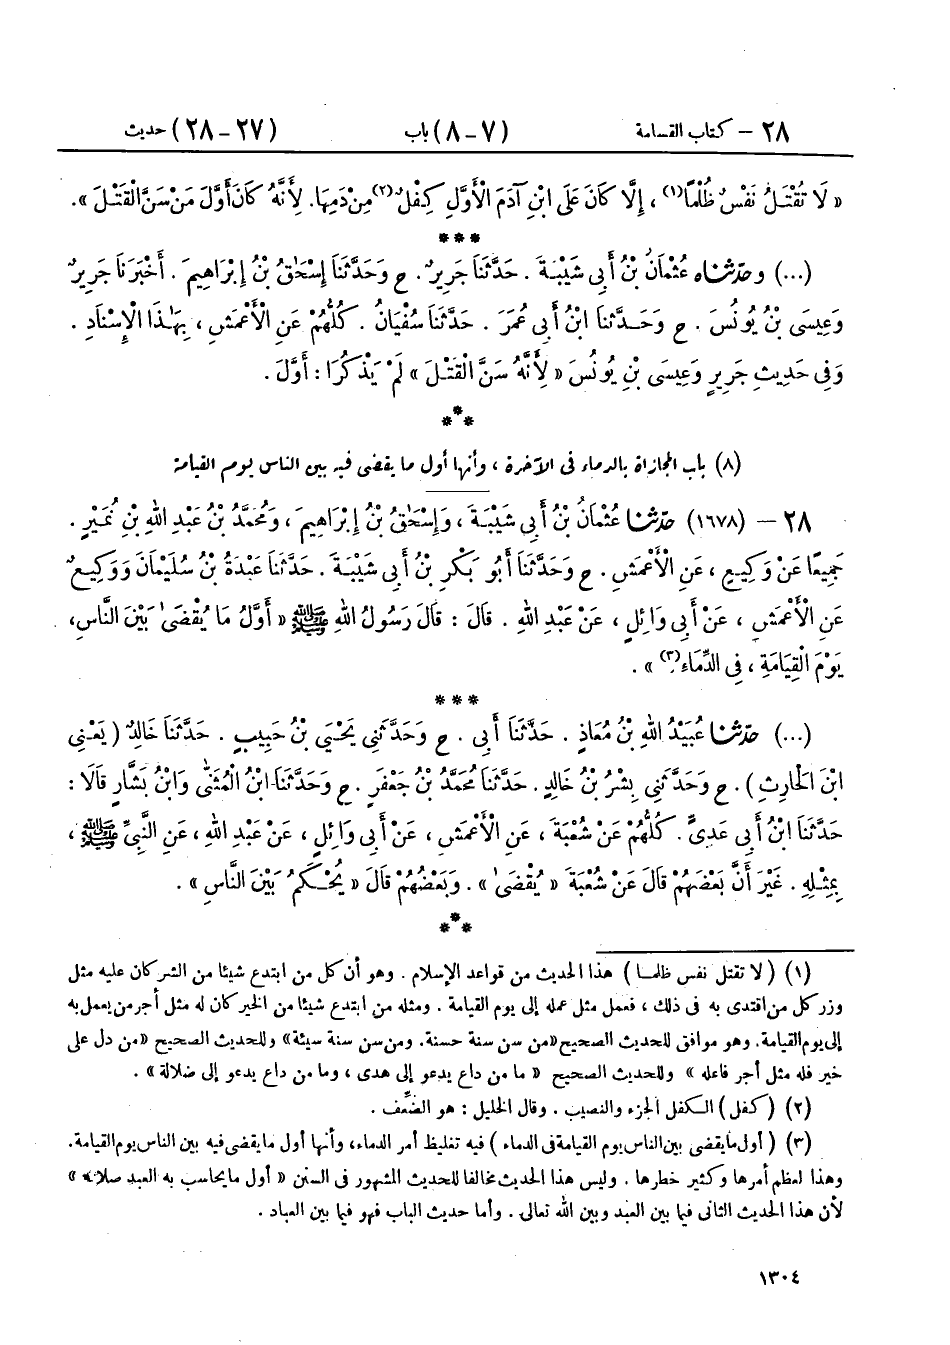 ٢٨ – كتاب القسامة (٧-٨) باب (٢٧-٢٨) حديث
« لَا تُقْتَلُ نَفْسٌ ظُلْمًا(١) ، إِلَّا كَانَ عَلَى ابْنِ آدَمَ الْأَوَّلِ كِفْلٌ(٢) مِنْ دَمِهَا. لِأَنَّهُ كَانَ أَوَّلَ مَنْ سَنَّ الْقَتْلَ ».
***
(...) وحَدَّثَنَاه عُثْمَانُ بْنُ أَبِي شَيْبَةَ . حَدَّثَنَا جَرِيرٌ. ح وَحَدَّثَنَا إِسْحَٰقُ بْنُ إِبْرَاهِيمَ . أَخْبَرَنَا جَرِيرٌ
وَعِيسَى بْنُ يُونُسَ . ح وَحَدَّثَنَا ابْنُ أَبِي عُمَرَ . حَدَّثَنَا سُفْيَانُ . كُلُّهُمْ عَنِ الْأَعْمَشِ ، بِهَٰذَا الْإِسْنَادِ .
وَفِي حَدِيثِ جَرِيرٍ وَعِيسَى بْنِ يُونُسَ « لِأَنَّهُ سَنَّ الْقَتْلَ » لَمْ يَذْكُرَا : أَوَّلَ .
***
(٨) باب المجازاة بالدماء فى الآخرة ، وأنها أول ما يقضى فيه بين الناس يوم القيامة
٢٨ – (١٦٧٨) حَدَّثَنَا عُثْمَانُ بْنُ أَبِي شَيْبَةَ ، وَإِسْحَٰقُ بْنُ إِبْرَاهِيمَ ، وَمُحَمَّدُ بْنُ عَبْدِ اللهِ بْنِ نُمَيْرٍ .
جَمِيعًا عَنْ وَكِيعٍ ، عَنِ الْأَعْمَشِ . ح وَحَدَّثَنَا أَبُو بَكْرِ بْنُ أَبِي شَيْبَةَ . حَدَّثَنَا عَبْدَةُ بْنُ سُلَيْمَانَ وَوَكِيعٌ
عَنِ الْأَعْمَشِ ، عَنْ أَبِي وَائِلٍ ، عَنْ عَبْدِ اللهِ . قَالَ : قَالَ رَسُولُ اللهِ ﷺ « أَوَّلُ مَا يُقْضَىٰ بَيْنَ النَّاسِ،
يَوْمَ الْقِيَامَةِ ، فِي الدِّمَاءِ(٣) » .
***
(...) حَدَّثَنَا عُبَيْدُ اللهِ بْنُ مُعَاذٍ . حَدَّثَنَا أَبِي . ح وَحَدَّثَنِي يَحْيَىٰ بْنُ حَبِيبٍ . حَدَّثَنَا خَالِدٌ ( يَعْنِي
ابْنَ الْحَارِثِ ) . ح وَحَدَّثَنِي بِشْرُ بْنُ خَالِدٍ . حَدَّثَنَا مُحَمَّدُ بْنُ جَعْفَرٍ . ح وَحَدَّثَنَا ابْنُ الْمُثَنَّىٰ وَابْنُ بَشَّارٍ قَالَا :
حَدَّثَنَا ابْنُ أَبِي عَدِيٍّ . كُلُّهُمْ عَنْ شُعْبَةَ ، عَنِ الْأَعْمَشِ ، عَنْ أَبِي وَائِلٍ ، عَنْ عَبْدِ اللهِ ، عَنِ النَّبِيِّ ﷺ ،
بِمِثْلِهِ . غَيْرَ أَنَّ بَعْضَهُمْ قَالَ عَنْ شُعْبَةَ « يُقْضَىٰ » . وَبَعْضُهُمْ قَالَ « يُحْكَمُ بَيْنَ النَّاسِ » .
***
(١) ( لا تقتل نفس ظلما ) هذا الحديث من قواعد الإسلام . وهو أن كل من ابتدع شيئا من الشر كان عليه مثل
وزر كل من اقتدى به فى ذلك ، فعمل مثل عمله إلى يوم القيامة . ومثله من ابتدع شيئا من الخير كان له مثل أجر من يعمل به
إلى يوم القيامة. وهو موافق للحديث الصحيح «من سن سنة حسنة. ومن سن سنة سيئة» وللحديث الصحيح «من دل على
خير فله مثل أجر فاعله » وللحديث الصحيح « ما من داع يدعو إلى هدى ، وما من داع يدعو إلى ضلالة » .
(٢) ( كفل ) الكفل الجزء والنصيب . وقال الخليل : هو الضِّعف .
(٣) ( أول ما يقضى بين الناس يوم القيامة فى الدماء ) فيه تغليظ أمر الدماء، وأنها أول ما يقضى فيه بين الناس يوم القيامة.
وهذا لعظم أمرها وكثير خطرها . وليس هذا الحديث مخالفا للحديث المشهور فى السنن « أول ما يحاسب به العبد صلاته »
لأن هذا الحديث الثانى فيما بين العبد وبين الله تعالى. وأما حديث الباب فهو فيما بين العباد .
١٣٠٤